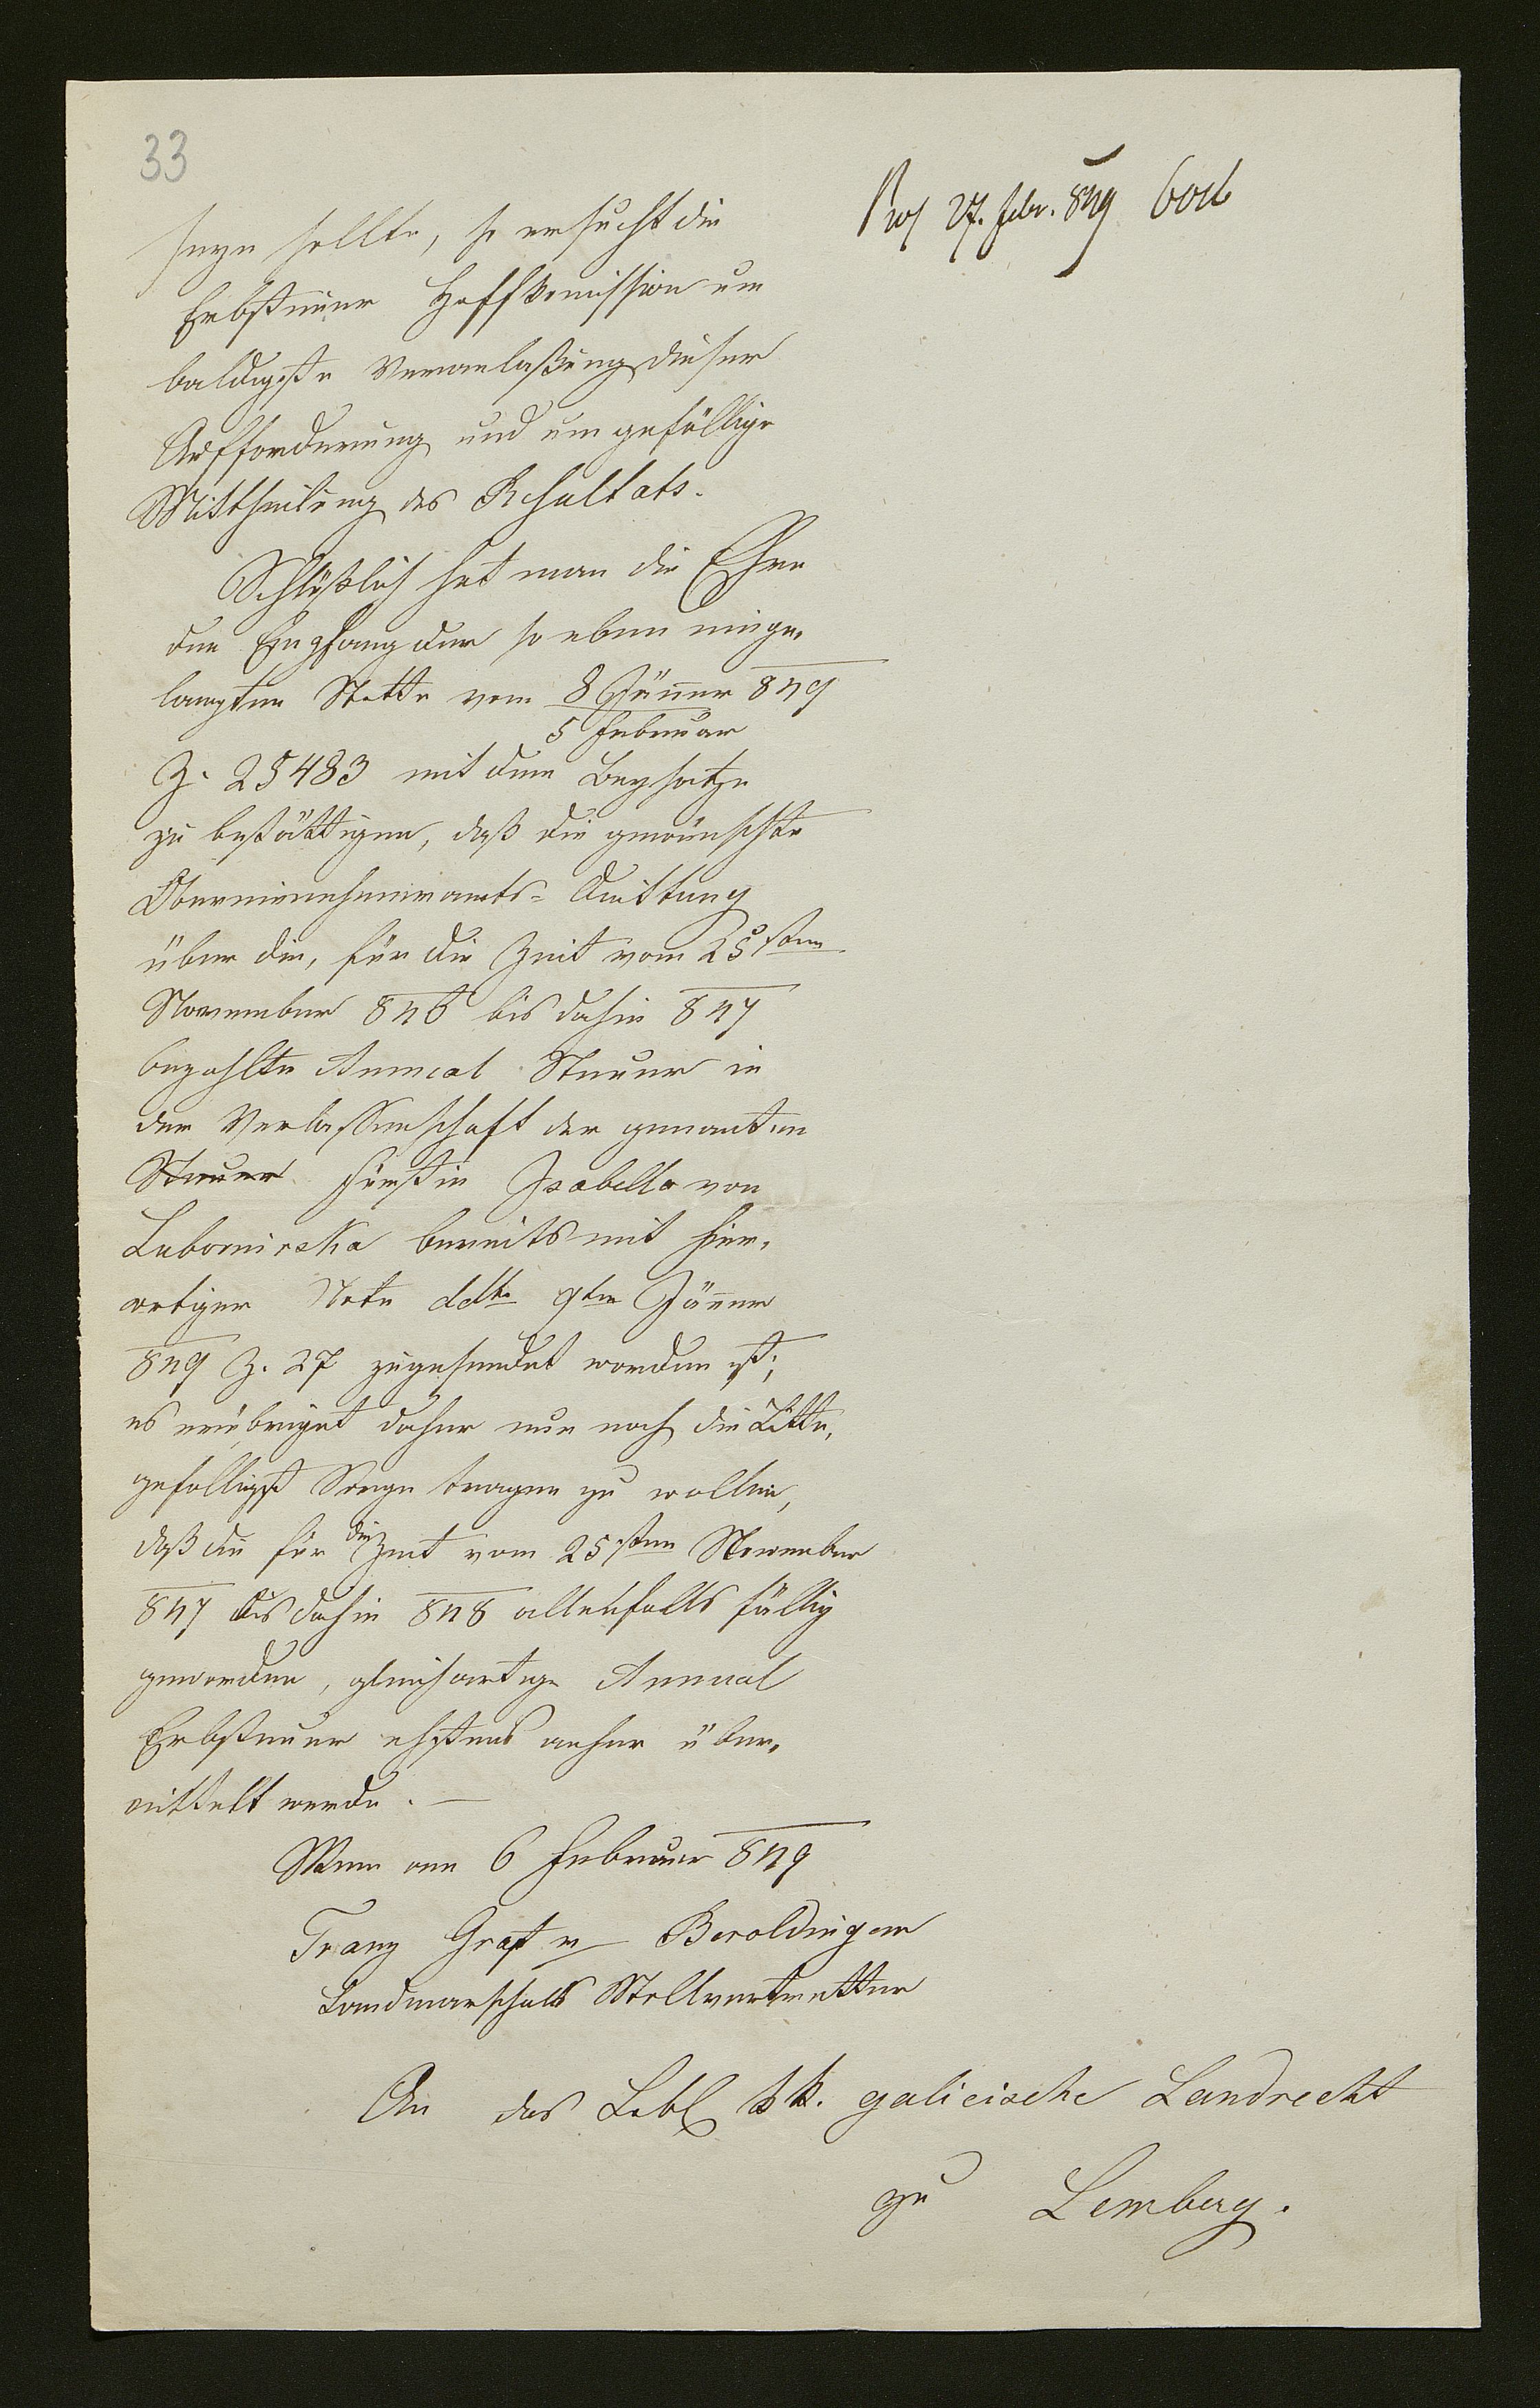 33
27. febr. 849
seyn sollte, so ersucht die
Erbsteuer Hoffkomission um
baldigste Veranlaßung dieser
Aufforderung und um gefällige
Mittheilung des Resultats.
Schlüßlich hat man die Ehre
den Empfang der so eben einge-
langten Notte vom 8 Jäner 849
5 Februar
Z. 25483 mit dem Beysatze
zu bestättigen, daß die gewünschte
Obereinnehmeramts- Quittung
über die, für die Zeit vom 25sten
November 846 bis dahin 847
bezahlte Annual Steuer in
der Verlassenschaft der genanten
Steuer Fürstin Isabella von
Lubomirska bereits mit hier-
ortiger Note ddto 9ten Jäner
849 Z. 27 zugesendet worden ist;
es erübriget daher nur noch die Bitte,
gefälligst Sorge tragen zu wollen,
daß die für die Zeit vom 25sten November
847 bis dahin 848 allenfalls fällig
geworden, gleichartige Annual
Erbsteuer ehstens anher über-
mittelt werde. —
Wien am 6 Februar 849
Franz Graf v Beroldingen
Landmarschalls Stellvertretter
An das Löbl kk. galicische Landrecht
zu Lemberg.